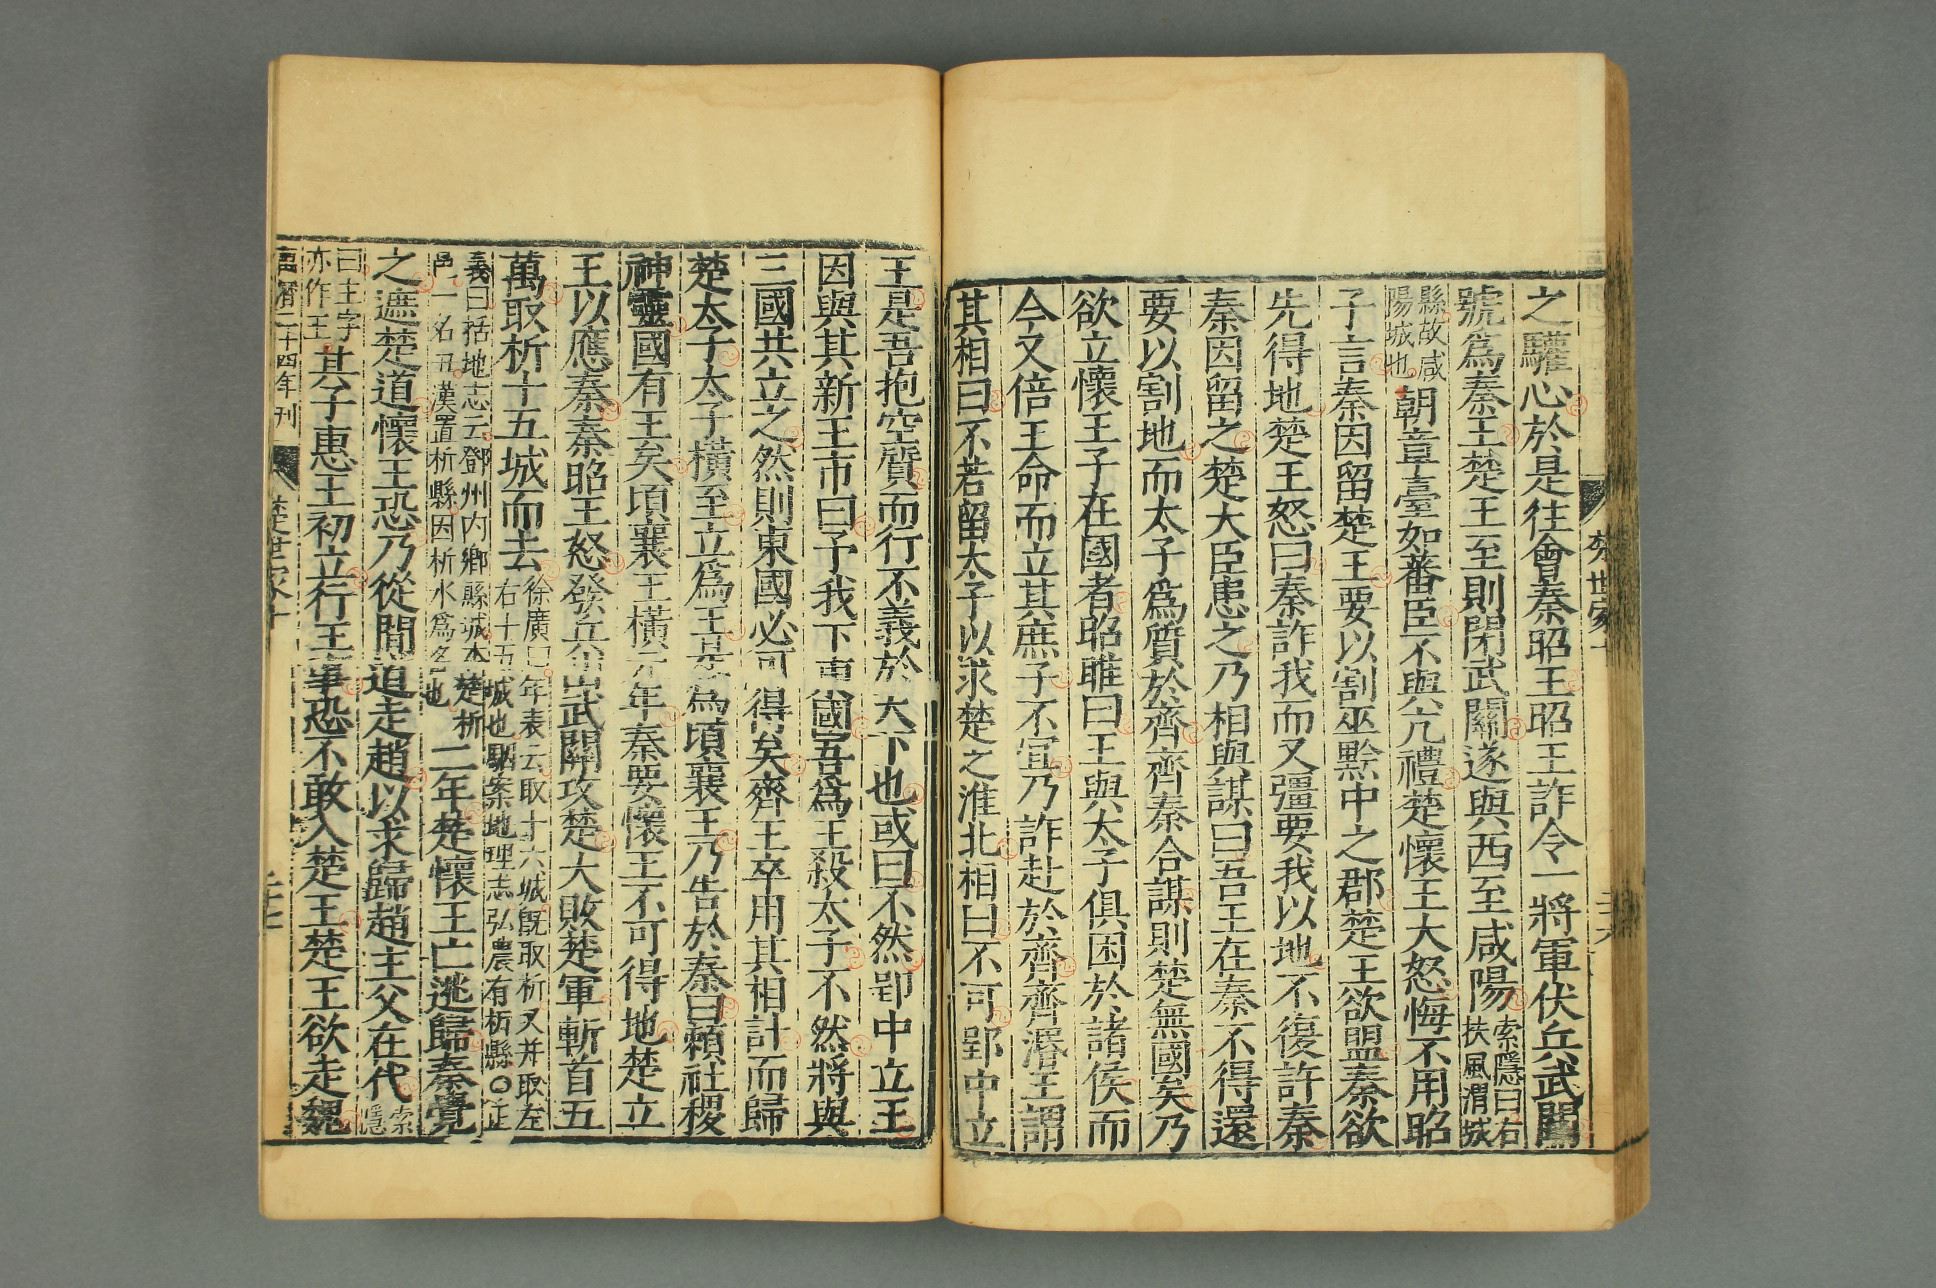 楚世家十
之驩心於是往會秦昭王昭王詐令一將軍伏兵武關
號爲秦王楚王至則閉武關遂與西至咸陽索隱曰右扶風渭城
縣故咸陽城也朝章臺如蕃臣不與亢禮楚懷王大怒悔不用昭
子言秦因留楚王要以割巫黔中之郡楚王欲盟秦欲
先得地楚王怒曰秦詐我而又彊要我以地不復許秦
秦因留之楚大臣患之乃相與謀曰吾王在秦不得還
要以割地而太子爲質於齊齊秦合謀則楚無國矣乃
欲立懷王子在國者昭雎曰王與太子俱困於諸侯而
今又倍王命而立其庶子不宜乃詐赴於齊齊湣王謂
其相曰不若留太子以求楚之淮北相曰不可郢中立
王是吾抱空質而行不義於天下也或曰不然郢中立王
因與其新王市曰予我下東國吾爲王殺太子不然將與
三國共立之然則東國必可得矣齊王卒用其相計而歸
楚太子太子橫至立爲王是爲頃襄王乃告於秦曰賴社稷
神靈國有王矣頃襄王橫元年秦要懷王不可得地楚立
王以應秦秦昭王怒發兵出武關攻楚大敗楚軍斬首五
萬取析十五城而去徐廣曰年表云取十六城旣取析又并取左右十五城也駰案地理志弘農有析縣○正
義曰括地志云鄧州內鄉縣城本楚析邑一名丑漢置析縣因析水爲名也二年楚懷王亡逃歸秦覺
之遮楚道懷王恐乃從間道走趙以求歸趙主父在代索隱
曰主字亦作王其子惠王初立行王事恐不敢入楚王楚王欲走魏
萬曆二十四年刊
楚世家十
二十七